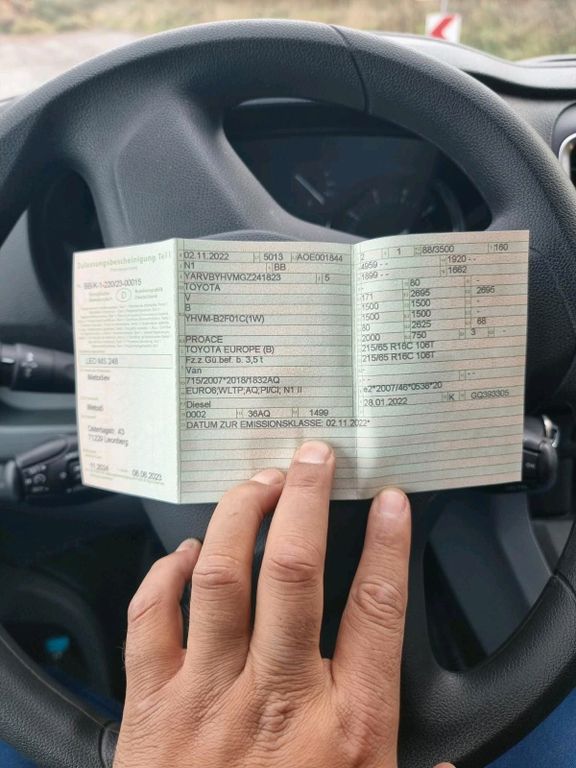 Zulassungsbescheinigung Teil I
BB/K-1-220/23-00015
D
LEO MS 248
Metodiev
Metodi
Ostertagstr. 43
71229 Leonberg
11.2024 06.06.2023
02.11.2022 5013 AOE001844
N1 BB
YARVBYHVMGZ241823 5
TOYOTA
V
B
YHVM-B2F01C(1W)
PROACE
TOYOTA EUROPE (B)
Fz.z.Gü.bef. b. 3,5 t
Van
715/2007*2018/1832AQ
EURO6;WLTP,AQ;PI/CI; N1 II
Diesel
0002 36AQ 1499
DATUM ZUR EMISSIONSKLASSE: 02.11.2022*
2 1 88/3500 160
4959 -- 1920 --
1899 -- 1662
- 80 -
171 2695 2695
1500 1500 -
1500 1500 -
80 2625 68
2000 750 3 -
215/65 R16C 106T
215/65 R16C 106T
-
e2*2007/46*0538*20
28.01.2022 K GQ393305